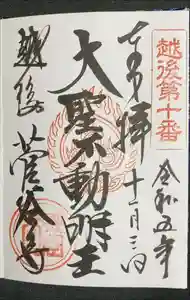 越後第十番
令和五年
奉拝
十一月三日
大聖不動明王
越後
菅谷寺